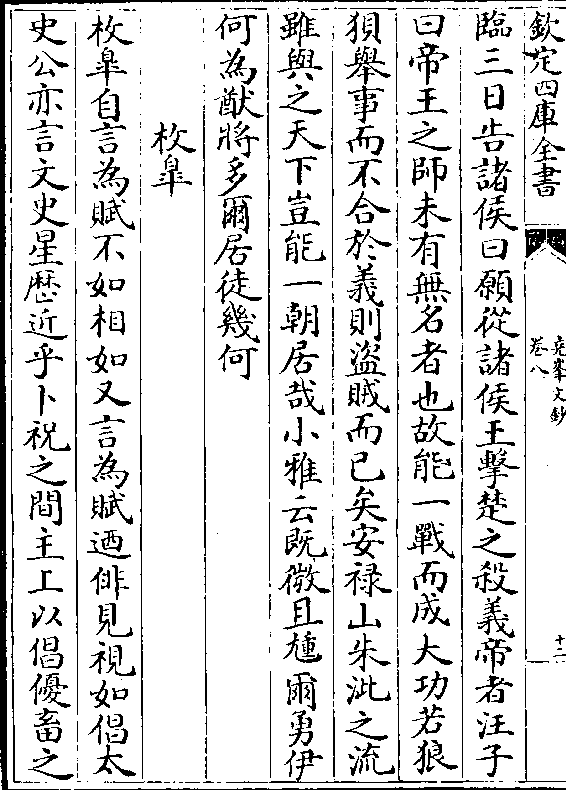 欽定四庫全書
堯峯文鈔
卷八
十二
臨三日告諸侯曰願從諸侯王擊楚之殺義帝者汪子
曰帝王之師未有無名者也故能一戰而成大功若狼
狽舉事而不合於義則盜賊而已矣安禄山朱泚之流
雖與之天下豈能一朝居哉小雅云既微且尰爾勇伊
何為猷將多爾居徒幾何
枚臯
枚臯自言為賦不如相如又言為賦迺俳見視如倡太
史公亦言文史星歴近乎卜祝之間主上以倡優畜之